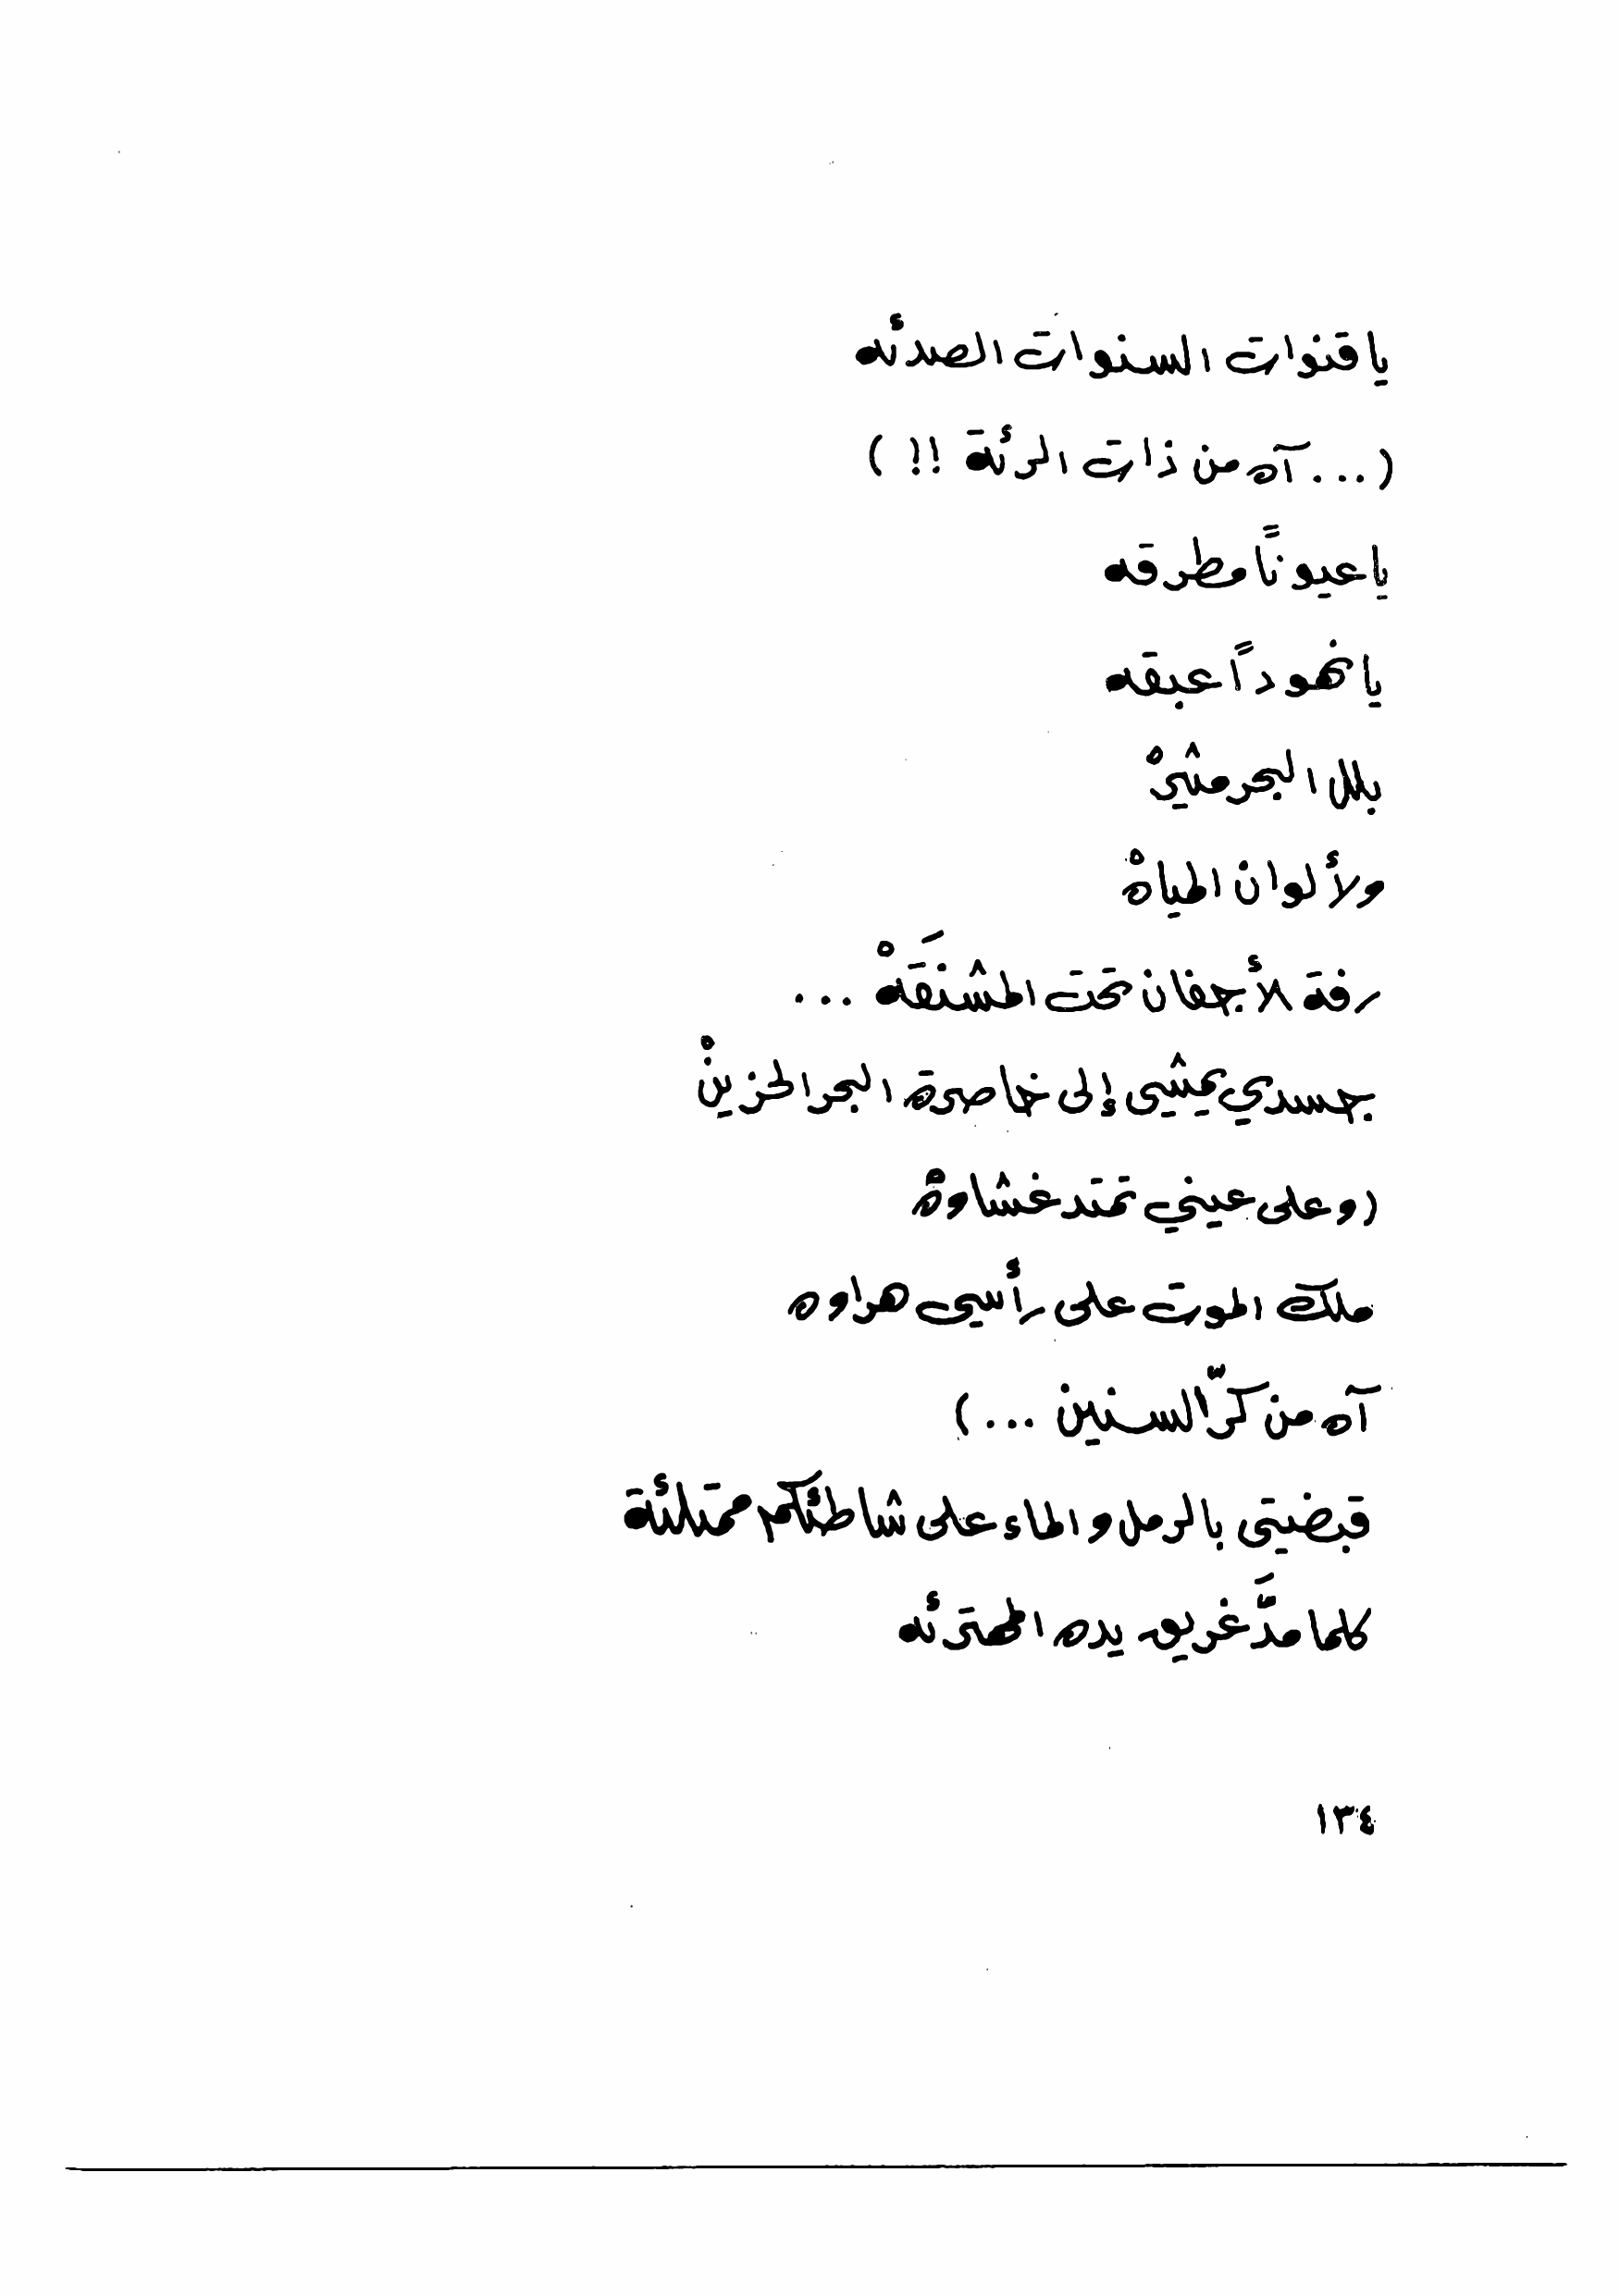 يا قنوات السنوات الصدئه
(... آه من ذات الرئة !! )
يا عيونًا مطرقه
يا نهودًا عبقه
بلل البحر مثيرْ
ولألوان المياهْ
رفة لأجفان تحت المشنقَهْ ...
جسدي يمشي إلى خاصرة البحر الحزينْ
(وعلى عيني تمتد غشاوهْ
ملك الموت على رأسي هراوه
آه من كرّ السنين ...)
قبضتي بالرمل والماء على شاطئكم ممتلئة
كلما مدَّ غريق يده المهترئه
١٣٤